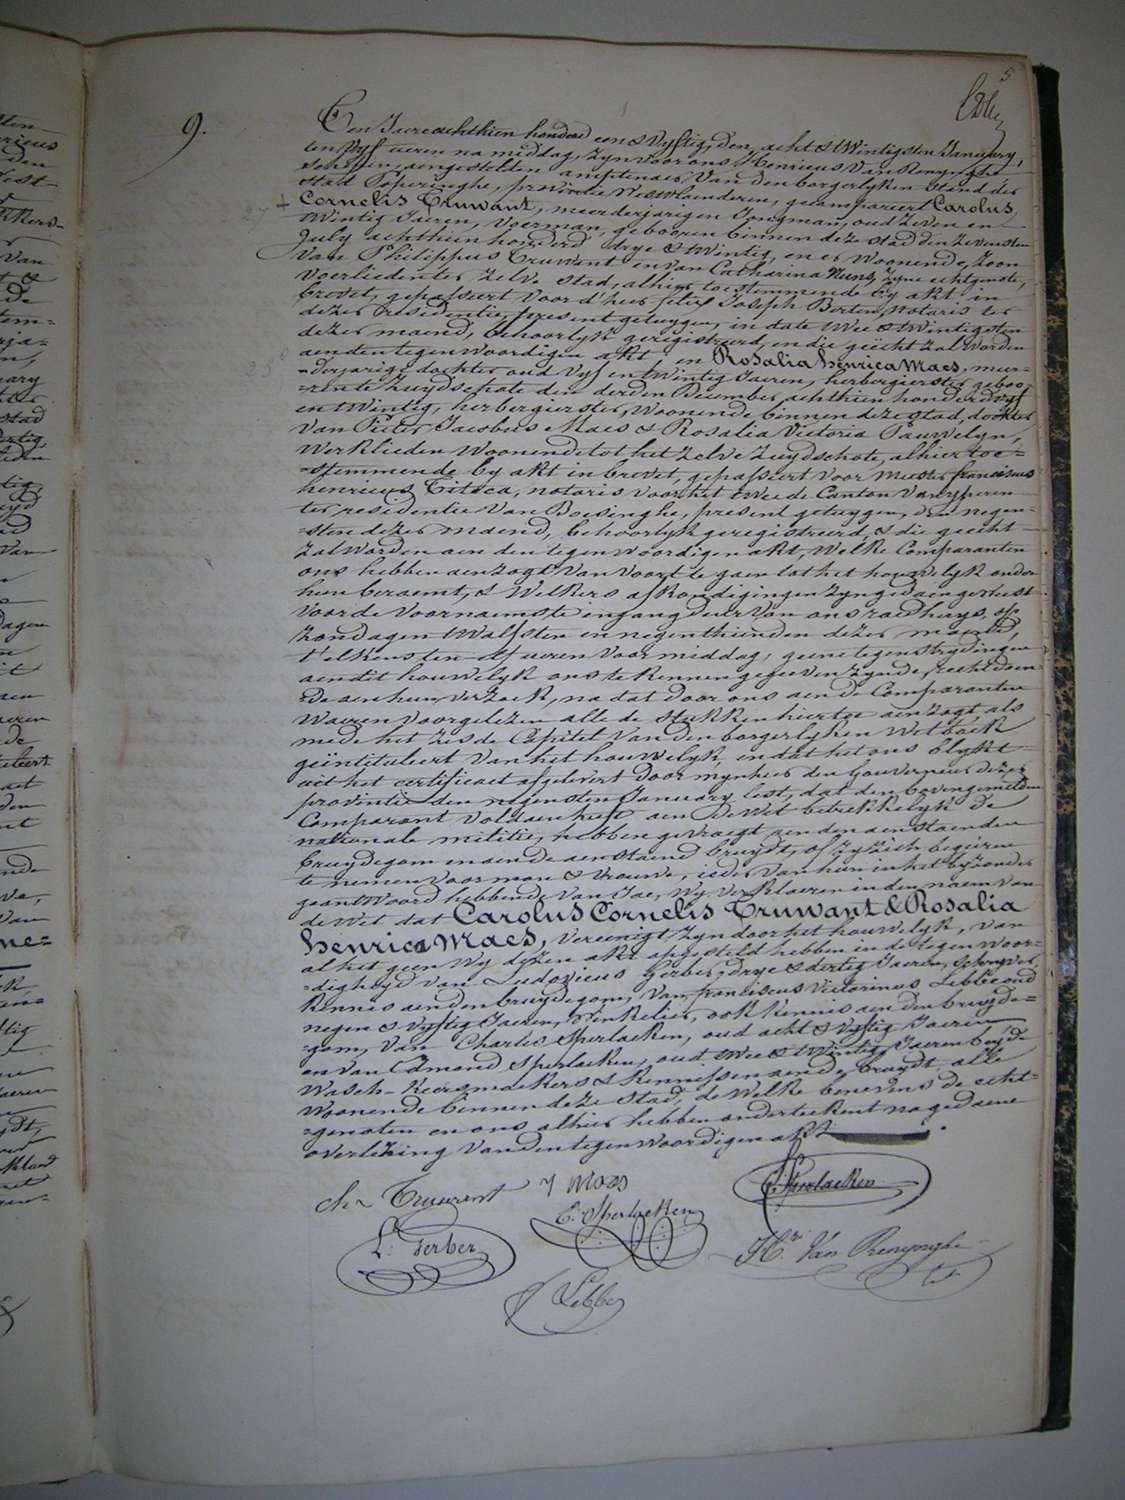 5
9.
Een Jaere achthien honderd een & Vyftig, den acht & twintigsten January,
ten vyf ueren namiddag, Zyn voor ons Henricus Van Renynghe
schepen, aengestelden amptenaer Van den borgerlyken Stand der
Stad Poperinghe, provintie Westvlaenderen, gecompareert Carolus
Cornelis Truwant, meerderjarigen Jongman, oud Zeven en
twintig Jaeren, Voerman, gebooren binnen deze stad den Zevensten
July achthien honderd drye & twintig, en er woonende, Zoon
Van Philippus Truwant en van Catharina Nuns, Zyne echtgenote,
Voerlieden ter Zelve Stad, alhier toestemmende by akt in
brevet, gepasseert voor d'heer felix Joseph Berten, notaris ter
dezer residentie, present getuygen, in date twee & twintigsten
dezer maend, behoorlyk geregistreerd, en die geëcht zal worden
aen den tegenwoordigen akt, en Rosalia henrica Maes, meer-
-derjarige dochter oud Vyf en twintig Jaeren, herbergierster geboo-
-ren te Zuydschote den derden December achthien honderd vyf
en twintig, herbergierster, woonende binnen deze stad, dochter
Van Pieter Jacobus Maes & Rosalia Victoria Pauwelyn,
Werklieden woonende tot het Zelve Zuydschote, alhier toe-
-stemmende by akt in brevet, gepasseert voor Meester franciscus
henricus Titeca, notaris voor het twee de Canton Van yperen
ter residentie Van Boesinghe, present getuygen, den negen-
-sten dezer maend, behoorlyk geregistreerd, & die geëcht
Zal worden aen den tegenwoordigen akt, Welke Comparanten
ons hebben aenzogt van voort te gaen tot het houwelyk onder
hun beraemt, & Welkers afkondigingen Zyn gedaen geweest
voor de voornaemste ingangdeur van ons raedhuys, op
Zondagen twalfsten en negenthienden dezer maend,
t'elkens ten elf ueren voormiddag, geene tegenstrydingen
aen dit houwelyk ons te kennen gegeven Zynde, rechtdoen-
-de aen hun verzoek, na dat door ons aen de Comparanten
Waeren voorgelezen alle de stukken hiertoe aenzogt als
mede het Zesde Capittel Van den borgerlyken Wetboek
geïntituleert Van het houwelyk, en dat het ons blykt
uit het certificaet afgelevert door mynheer den Gouverneur dezer
provintie den negensten January lest, dat den bovengemelden
Comparant Voldaen heeft aen de Wet betrekkelyk de
nationale militie, hebben gevraegt aen den aenstaenden
bruydegom en aen de aenstaende bruydt, of zy Zich begeiren
te nemen Voor man & Vrouwe, ieder Van hun in het byzonder
geantwoord hebbende Van Jae, Wy verklaeren in den naem van
de Wet dat Carolus Cornelis Truwant & Rosalia
henrica Maes, Vereenigt Zyn door het houwelyk, van
al het geen Wy dezen akt opgesteld hebben in de tegenwoor-
-digheyd van Ludovicus Gerber, drye & dertig Jaeren, schryver,
Kennis aen den bruydegom, Van franciscus Victorinus Lebbe oud
negen & vyftig Jaeren, Winkelier, ook kennis aen den bruyde-
-gom, Van Charles Sperlaeken, oud acht & Vyftig Jaeren
en van Edmond Sperlaeken, oud twee & twintig Jaeren beyde
Wasch-keersmaekers & kennissen aen de bruydt, alle
Woonende binnen deze stad, de Welke benevens de echt-
-genoten en ons alhier hebben onderteekent na gedaene
overlezing Van den tegenwoordigen akt
ch. Truwant   Maes   C. Sperlaeken
L. Gerber   E. Sperlaeken   H.ri Van Renynghe
Lebbe